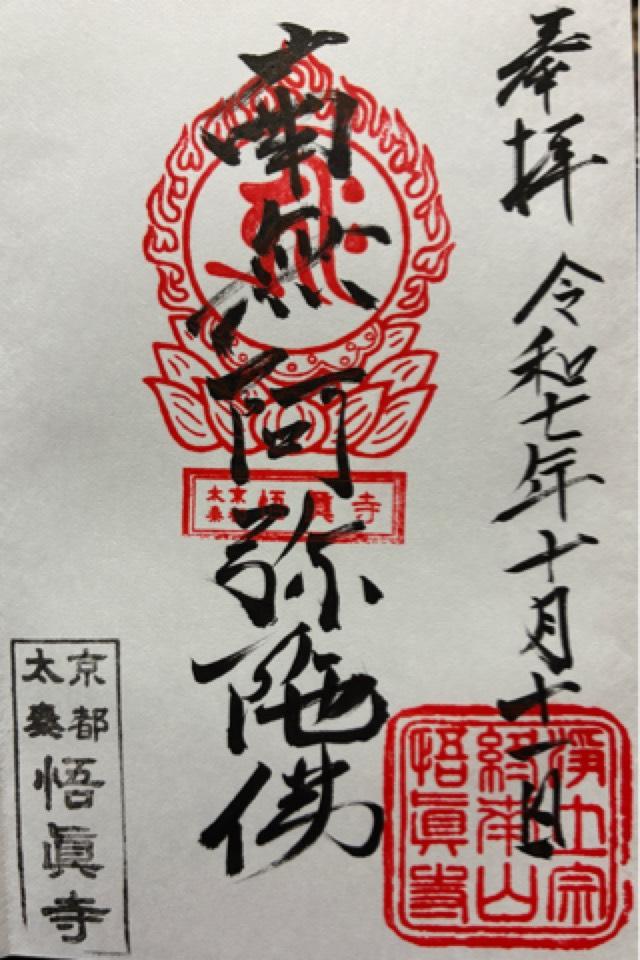 奉拝
令和七年十月十一日
南無阿弥陀佛
京都太秦悟眞寺
浄土宗
終南山
悟眞寺
京都
太秦
悟眞寺